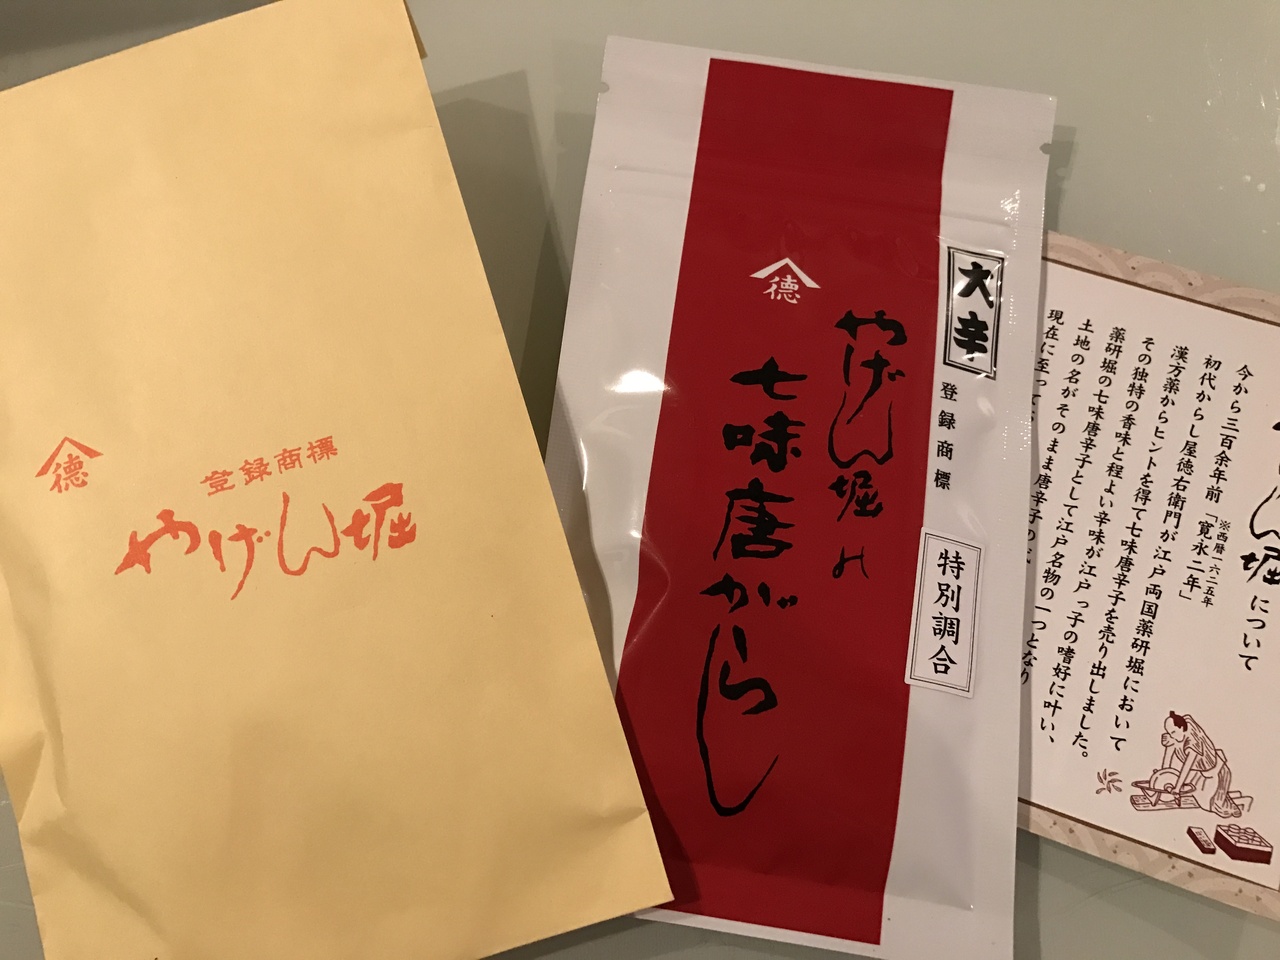 徳
登録商標
やげん堀
徳
大辛
登録商標
やげん堀の
七味唐がらし
特別調合
ん堀について
今から三百余年前「寛永二年」
※西暦一六二五年
初代からし屋徳右衛門が江戸両国薬研堀において
漢方薬からヒントを得て七味唐辛子を売り出しました。
その独特の香味と程よい辛味が江戸っ子の嗜好に叶い、
薬研堀の七味唐辛子として江戸名物の一つとなり
土地の名がそのまま唐辛子の
現在に至って